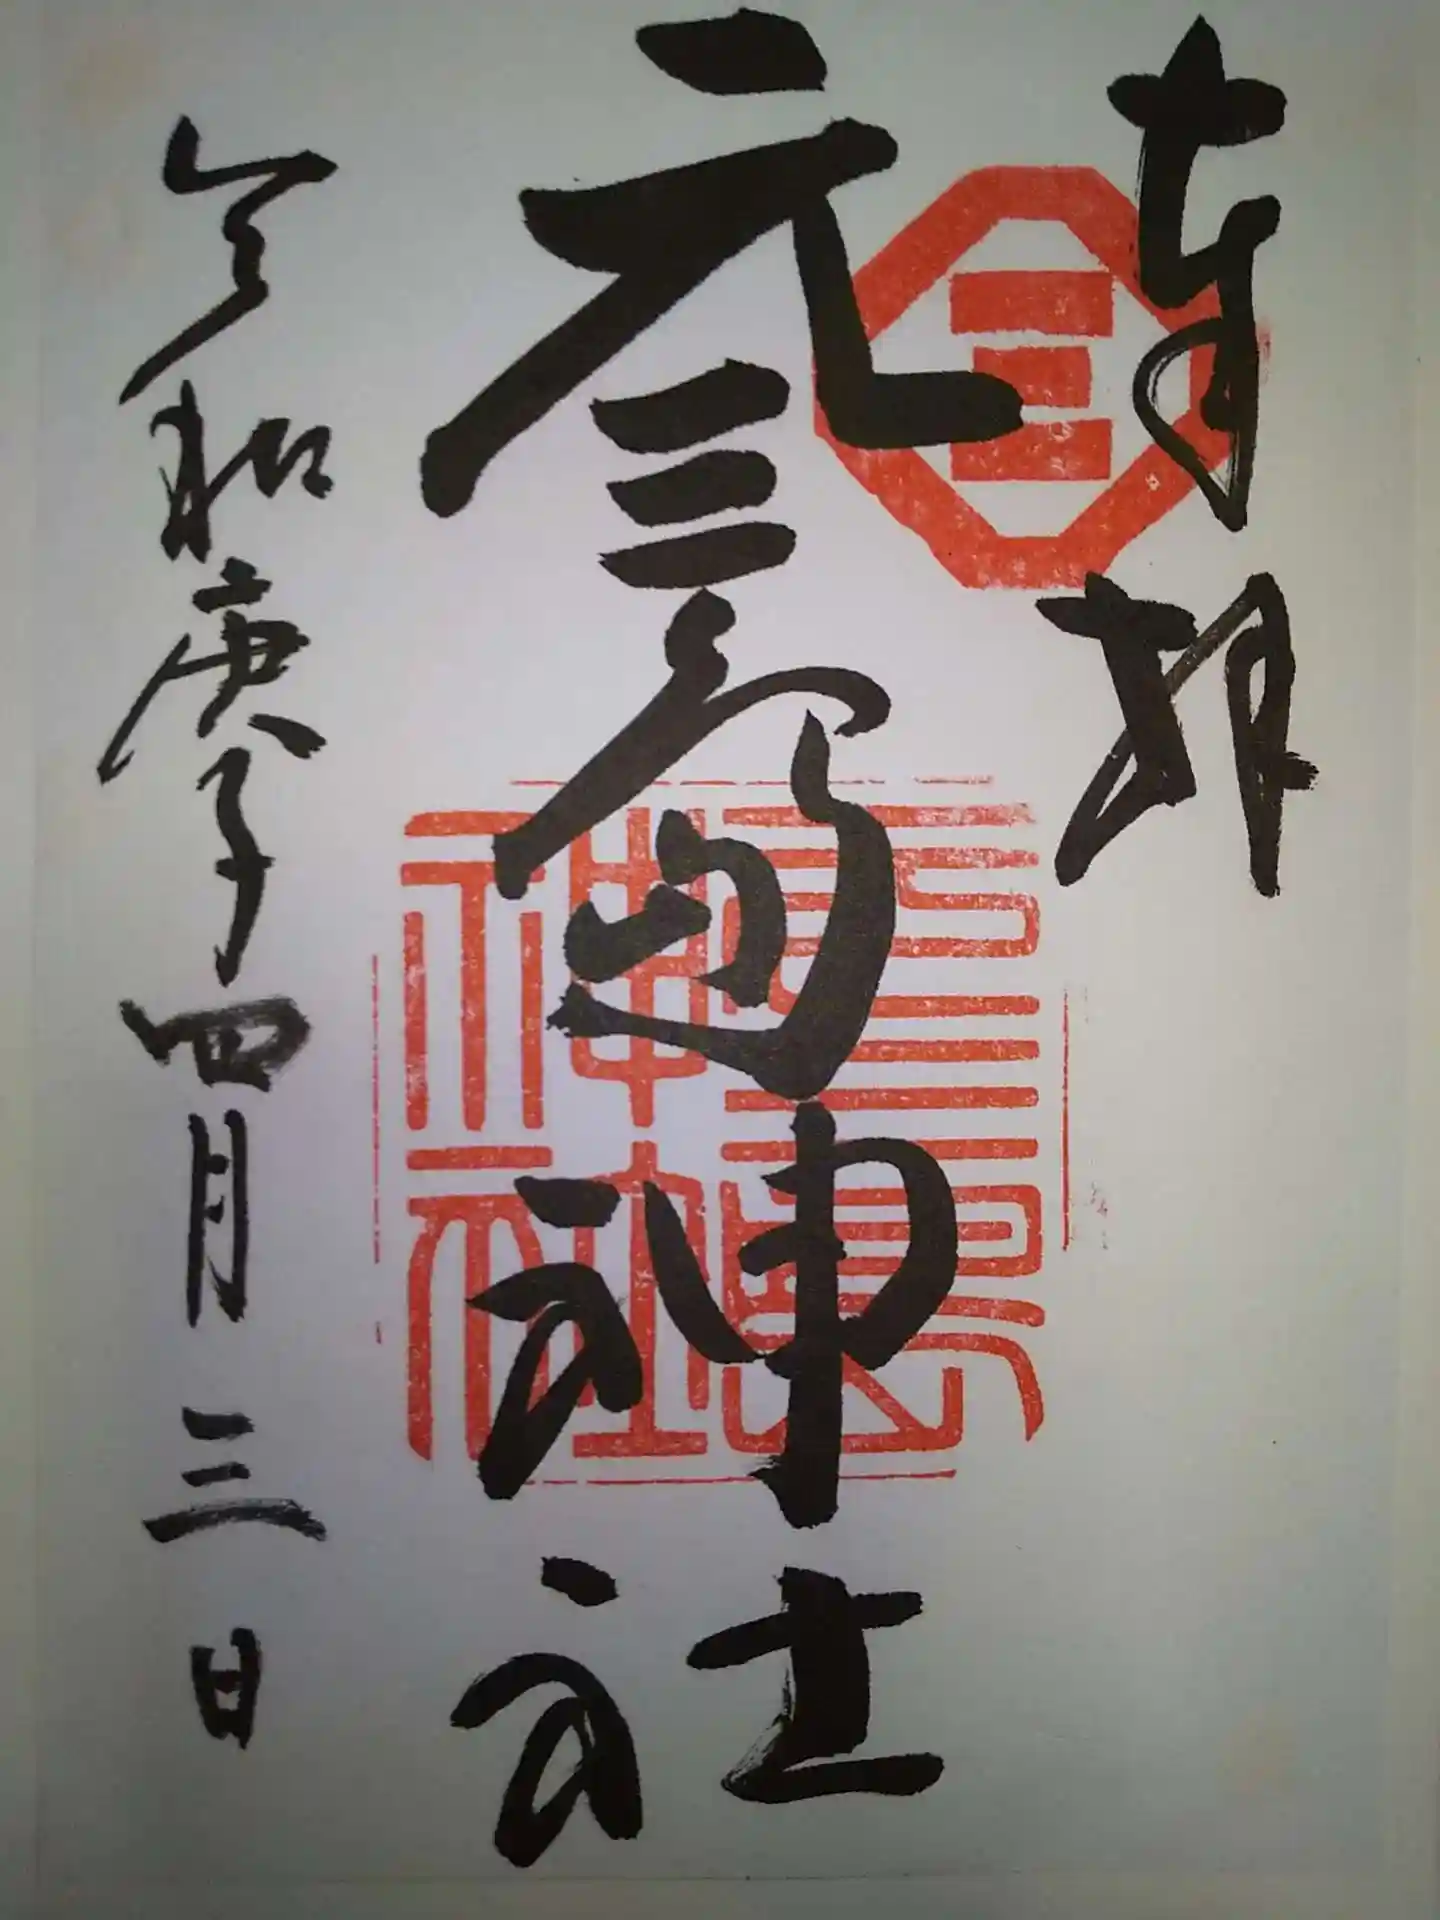 奉拝
元三島神社
令和庚子四月三日
三
元三島神社